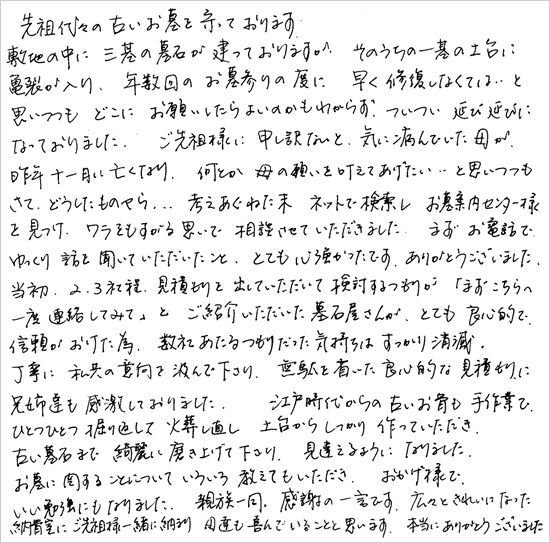 先祖代々の古いお墓を守っております
敷地の中に 三基の墓石が 建っておりますが、そのうちの一基の土台に
亀裂が入り、年数回の お墓参りの度に 早く修復しなくては‥と
思いつつも どこに お願いしたらよいのかもわからず、ついつい 延び延びに
なっておりました。ご先祖様に 申し訳ないと、気に病んでいた母が、
昨年十一月に亡くなり、何とか 母の願いを叶えてあげたい‥と思いつつも
さて、どうしたものやら... 考えあぐねた末 ネットで検索し お墓案内センター様
を見つけ、ワラをもすがる思いで 相談させていただきました。まず お電話で
ゆっくり 話を聞いていただいたこと、とても心強かったです。ありがとうございました。
当初、2、3社程、見積りを出していただいて 検討するつもりが「まずこちらへ
一度 連絡してみて」と ご紹介いただいた墓石屋さんが、とても 良心的で、
信頼がおけた為、数社あたるつもりだった気持ちは すっかり消滅。
丁寧に 私共の意向を汲んで下さり、無駄を省いた良心的な 見積りに
兄姉達も感激しておりました。江戸時代からの古いお骨も 手作業で、
ひとつひとつ 掘り返して 火葬し直し 土台からしっかり 作っていただき、
古い墓石まで 綺麗に 磨き上げて下さり、見違えるように なりました。
お墓に関することについていろいろ 教えてもいただき、おかげ様で、
いい勉強にもなりました。親族一同、感謝の一言です。広々ときれいになった
納骨室にご先祖様と一緒に納まり 母達も喜んでいることと思います。本当にありがとうございました